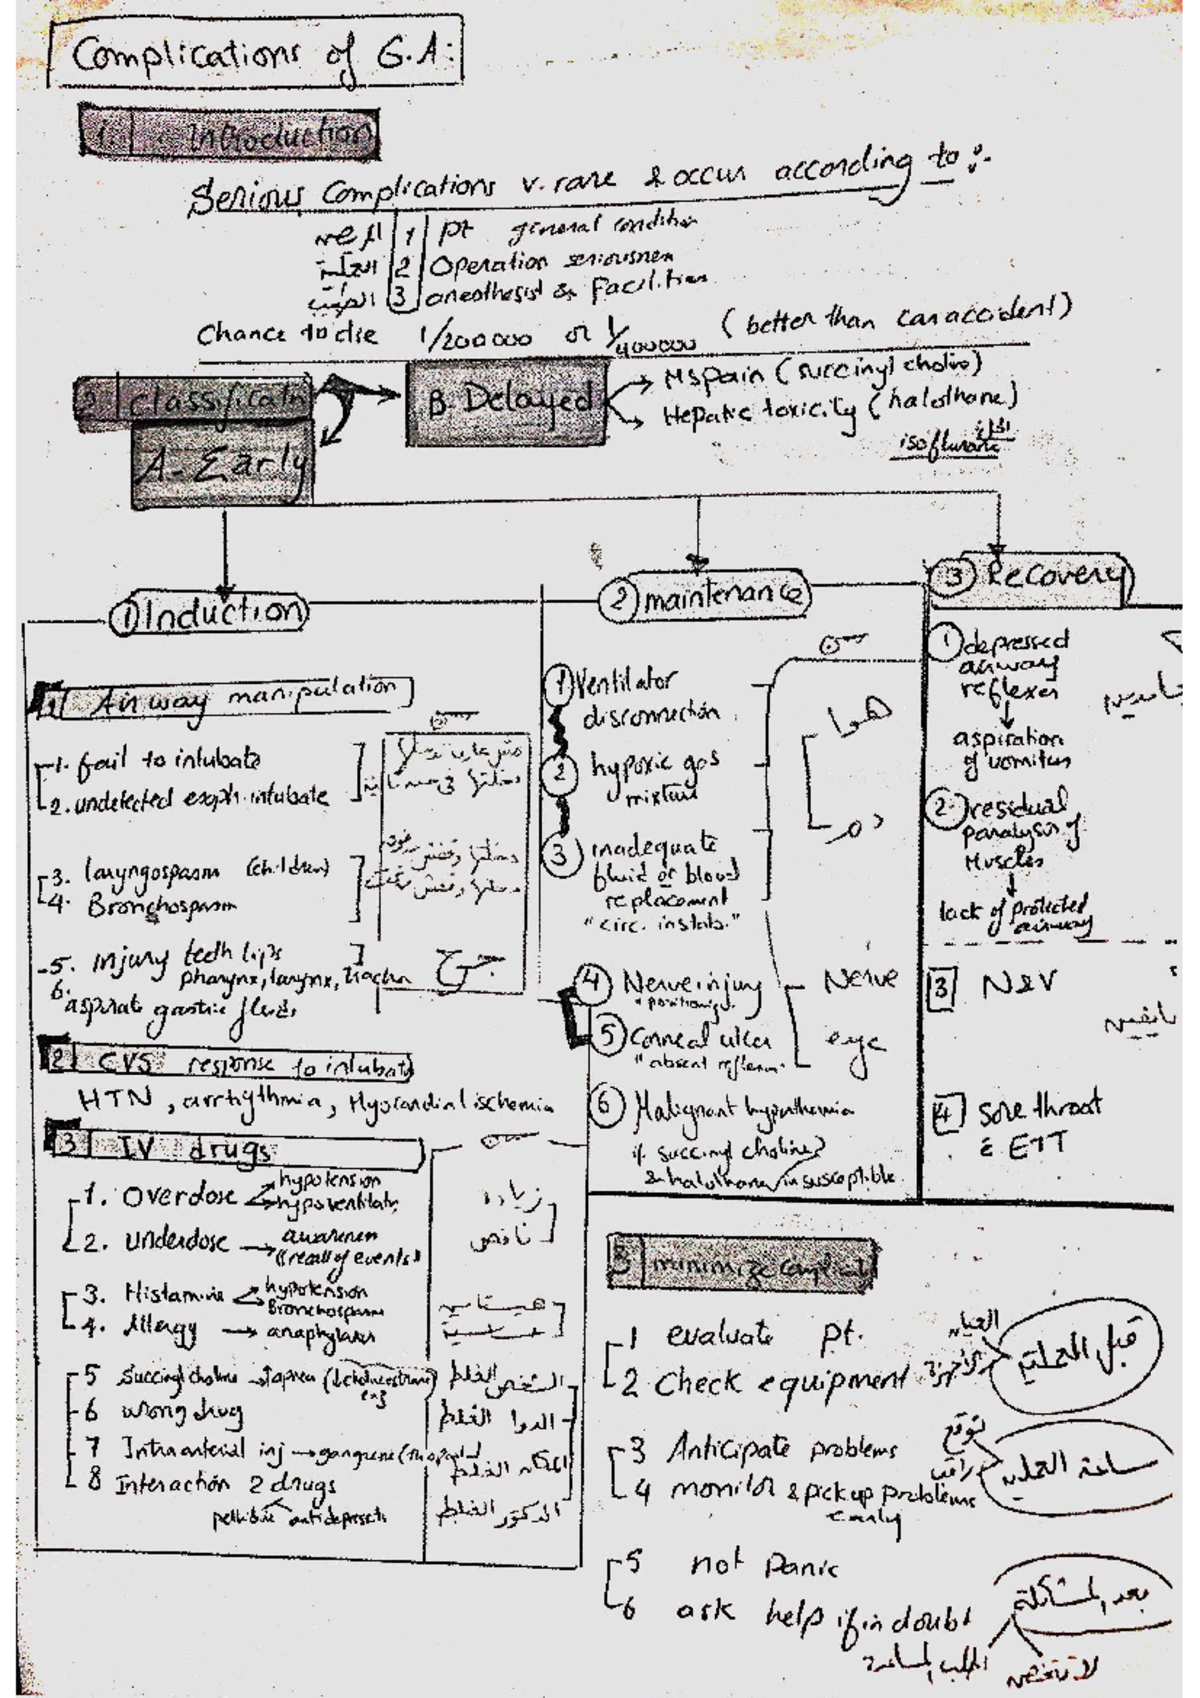 Complications of G.A:
1. Introduction
Serious Complications v. rare & occur according to :-
1 pt general condition
2 Operation seriousness
3 anesthesist & facilities
Chance to die 1/200 000 or 1/400000 (better than car accident)
2 Classificatn
B. Delayed
Ms pain (succinyl choline)
Hepatic toxicity (halothane)
isoflurane
A- Early
① Induction
1 Airway manipulation
1. fail to intubate
2. undetected esoph. intubate
3. laryngospasm (children)
4. Bronchospasm
5. injury teeth lips
pharynx, larynx, trachea
جرح
6. aspirat gastric fluids
2 CVS response to intubat
HTN, arrhythmia, Myocardial ischemia
3 IV drugs
1. Overdose hypotension
hypoventilatn
زيادة
2. underdose → awareness
"(recall of events)
ناقص
3. Histamine hypotension
Bronchospasm
هيستامين
4. Allergy → anaphylaxis
حساسية
5 Succinyl choline → apnea (↓ cholinesterase)
الشخص الغلط
6 wrong drug
الدوا الغلط
7 Intraarterial inj → gangrene
المكان الغلط
8 Interaction 2 drugs
pethidine antidepressants
الدكتور الغلط
② maintenance
① Ventilator
disconnection
هوا
② hypoxic gas
mixture
③ inadequate
fluid or blood
replacement
"circ. instab."
دم
④ Nerve injury
"positioning"
Nerve
⑤ Corneal ulcer
"absent reflexes"
eye
⑥ Malignant hyperthemia
if succinyl choline
& halothane in susceptible
③ Recovery
① depressed
airway
reflexes
↓
aspiration
of vomitus
② residual
paralysis of
Muscles
↓
lack of protected
airway
3 N&V
4 sore throat
ē ETT
3 minimize complicat
1 evaluate pt.
العيان
2 Check equipment
الأجهزة
قبل العملية
3 Anticipate problems
توقع
4 monitor & pick up problems
early
راقب
ساعة العملية
5 not Panic
6 ask help if in doubt
بعد المشكلة
اطلب المساعدة